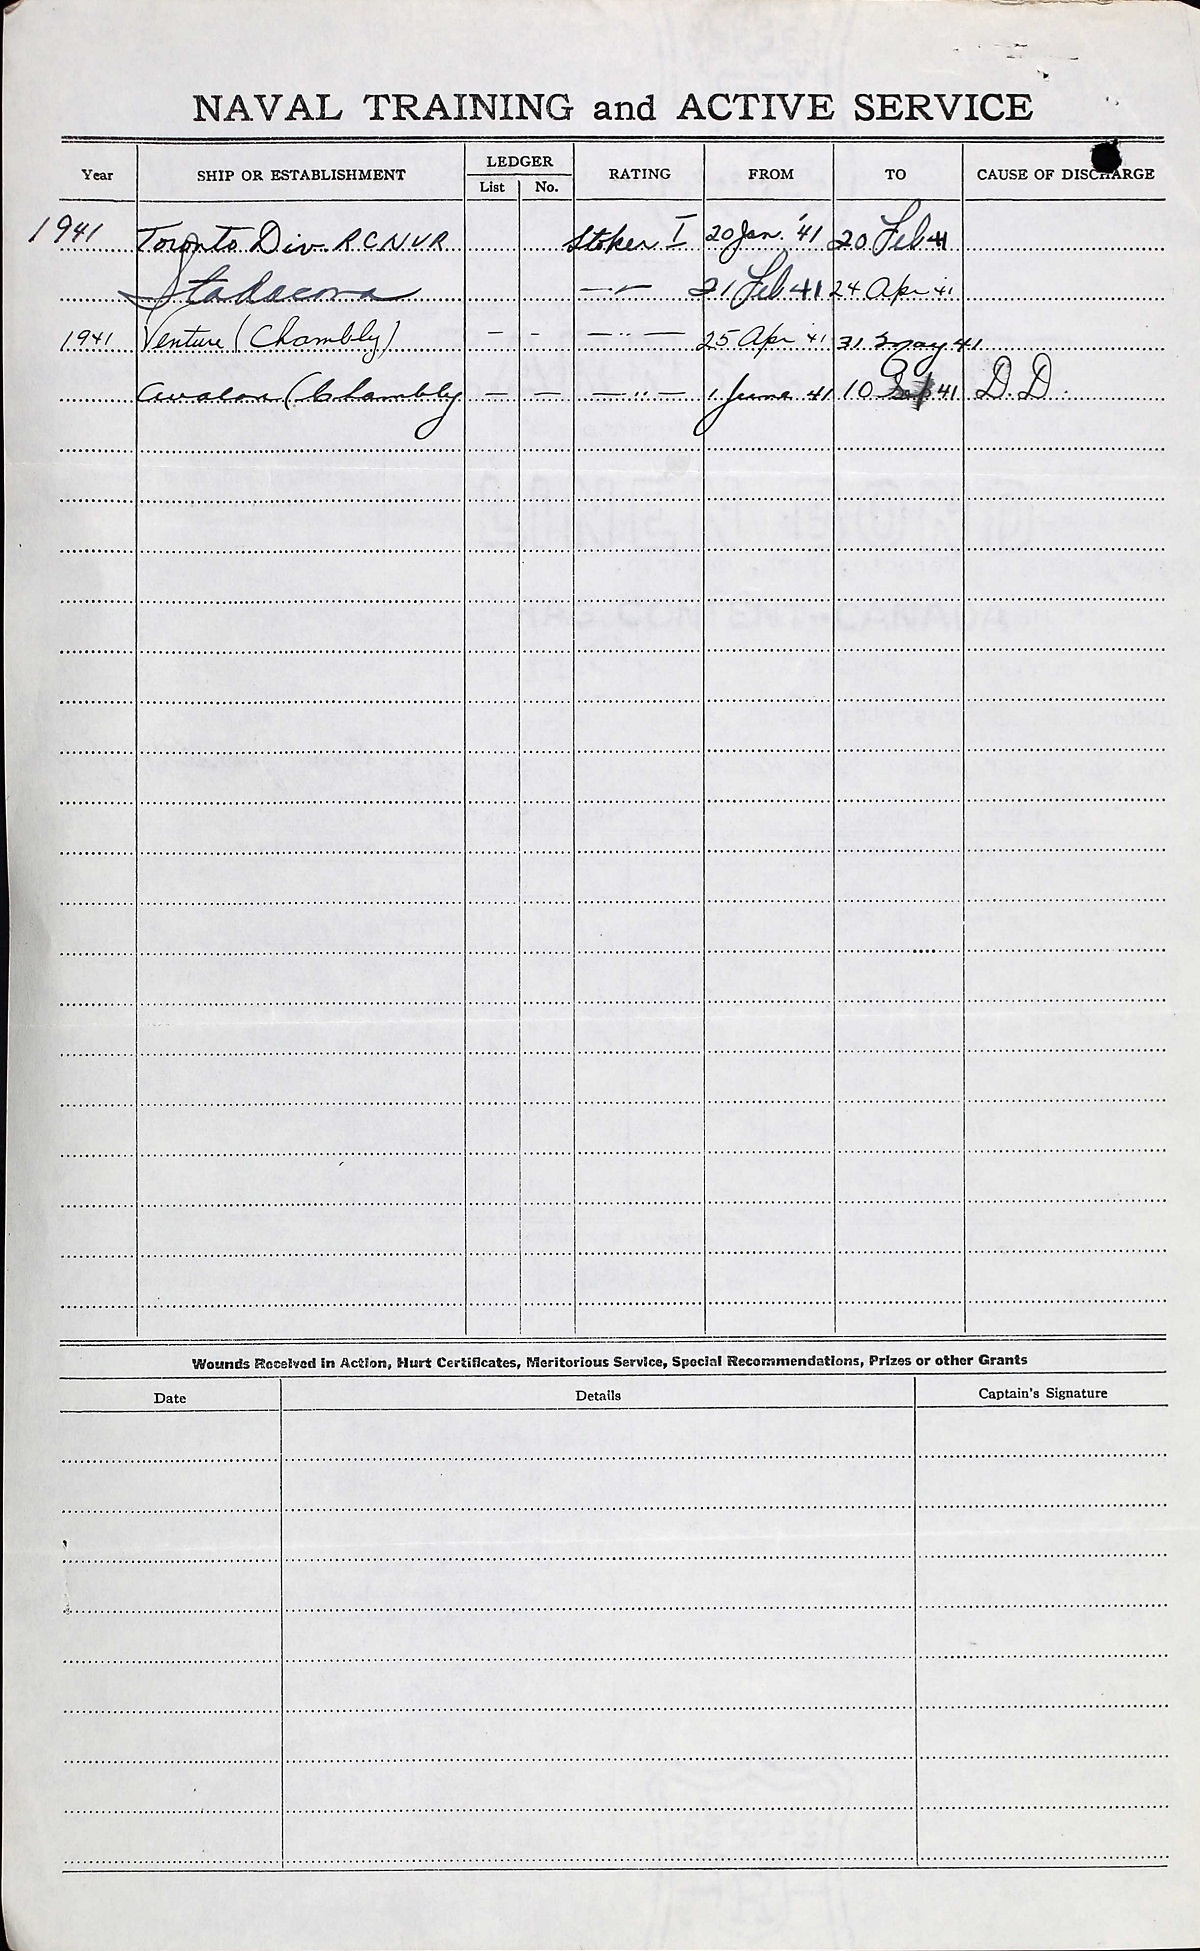 NAVAL TRAINING and ACTIVE SERVICE
Year SHIP OR ESTABLISHMENT LEDGER List No. RATING FROM TO CAUSE OF DISCHARGE
1941 Toronto Div. RCNVR Stoker I 20 Jan. '41 20 Feb 41
Stadacona —"— 21 Feb 41 24 Apr 41
1941 Venture (Chambly) - - —"— 25 Apr 41 31 May 41
Avalon (Chambly — — —"— 1 June 41 10 Sep 41 D.D.
Wounds Received in Action, Hurt Certificates, Meritorious Service, Special Recommendations, Prizes or other Grants
Date Details Captain's Signature